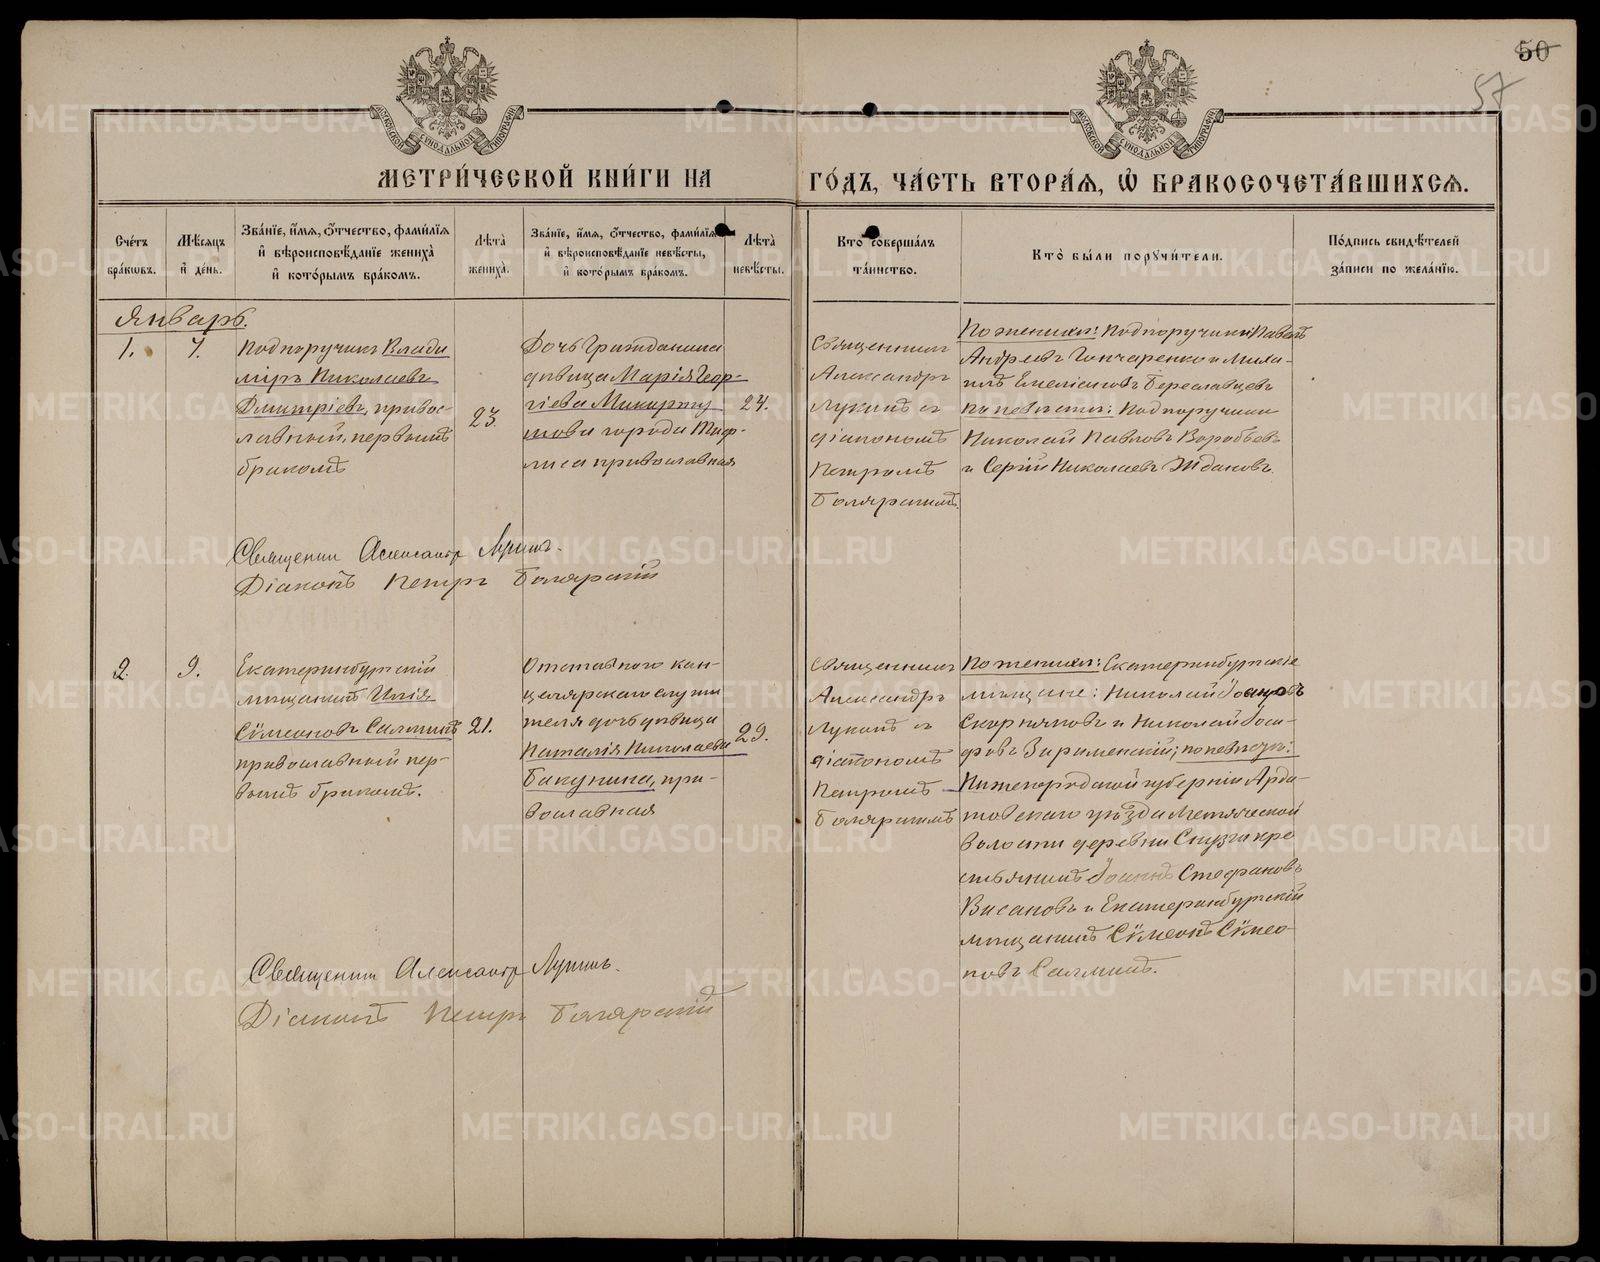 50
57
МОСКОВСКОЙ СѴНОДАЛЬНОЙ ТИПОГРАФІИ
МОСКОВСКОЙ СѴНОДАЛЬНОЙ ТИПОГРАФІИ
МЕТРИ́ЧЕСКОЙ КНИ́ГИ НА
ГО́ДЪ, ЧА́СТЬ ВТОРА́Я, Ѡ БРАКОСОЧЕТА́ВШИХСЯ.
Сче́тъ бра́кѡвъ.
Мѣ́сяцъ и де́нь.
Зва́нїе, и́мя, ѻ́тчество, фами́лїя и вѣроисповѣ́данїе жениха̀ и кото́рымъ бра́комъ.
Лѣта̀ жениха̀.
Зва́нїе, и́мя, ѻ́тчество, фами́лїя и вѣроисповѣ́данїе невѣ́сты, и кото́рымъ бра́комъ.
Лѣта̀ невѣ́сты.
Кто̀ соверша́лъ та́инство.
Кто̀ бы́ли поручи́тели.
По́дпись свидѣ́телей за́писи по жела́нїю.
Январь.
1.
7.
Подпоручикъ Влади
міръ Николаевъ
Дмитріевъ, правос-
лавный, первымъ
бракомъ
23.
Дочь Гражданина
дѣвица Марія Геор-
гіева
това города Тиф-
лиса православная
24.
Священникъ
Александръ
Лукинъ съ
діакономъ
Петромъ
Боярскимъ.
По женихѣ: Подпоручики Павелъ
Андреевъ Гончаренко и Миха-
илъ Емеліановъ Береславцевъ
по невѣстѣ: Подпоручики
Николай Павловъ Воробьевъ
и Сергій Николаевъ Ждановъ.
Священникъ Александръ Лукинъ.
Діаконъ Петръ Боярскій
2.
9.
Екатеринбургскій
мѣщанинъ Илія
Сѵмеоновъ Салминъ
православный пер-
вымъ бракомъ.
21.
Отставного кан-
целярскаго служи
теля дочь дѣвица
Наталія Николаева
Бакунина, пра-
вославная
29.
Священникъ
Александръ
Лукинъ съ
діакономъ
Петромъ
Боярскимъ
По женихѣ: Екатеринбургскіе
мѣщане: Николай Іоанновъ
и Николай Іоси-
фовъ по невѣстѣ:
Нижегородской губерніи Арда-
товскаго уѣзда
волости деревни кре
стьянинъ Іоаннъ Стефановъ
и Екатеринбургскій
мѣщанинъ Сѵмеонъ Сѵмео-
новъ Салминъ.
Священникъ Александръ Лукинъ.
Діаконъ Петръ Боярскій
METRIKI.GASO-URAL.RU